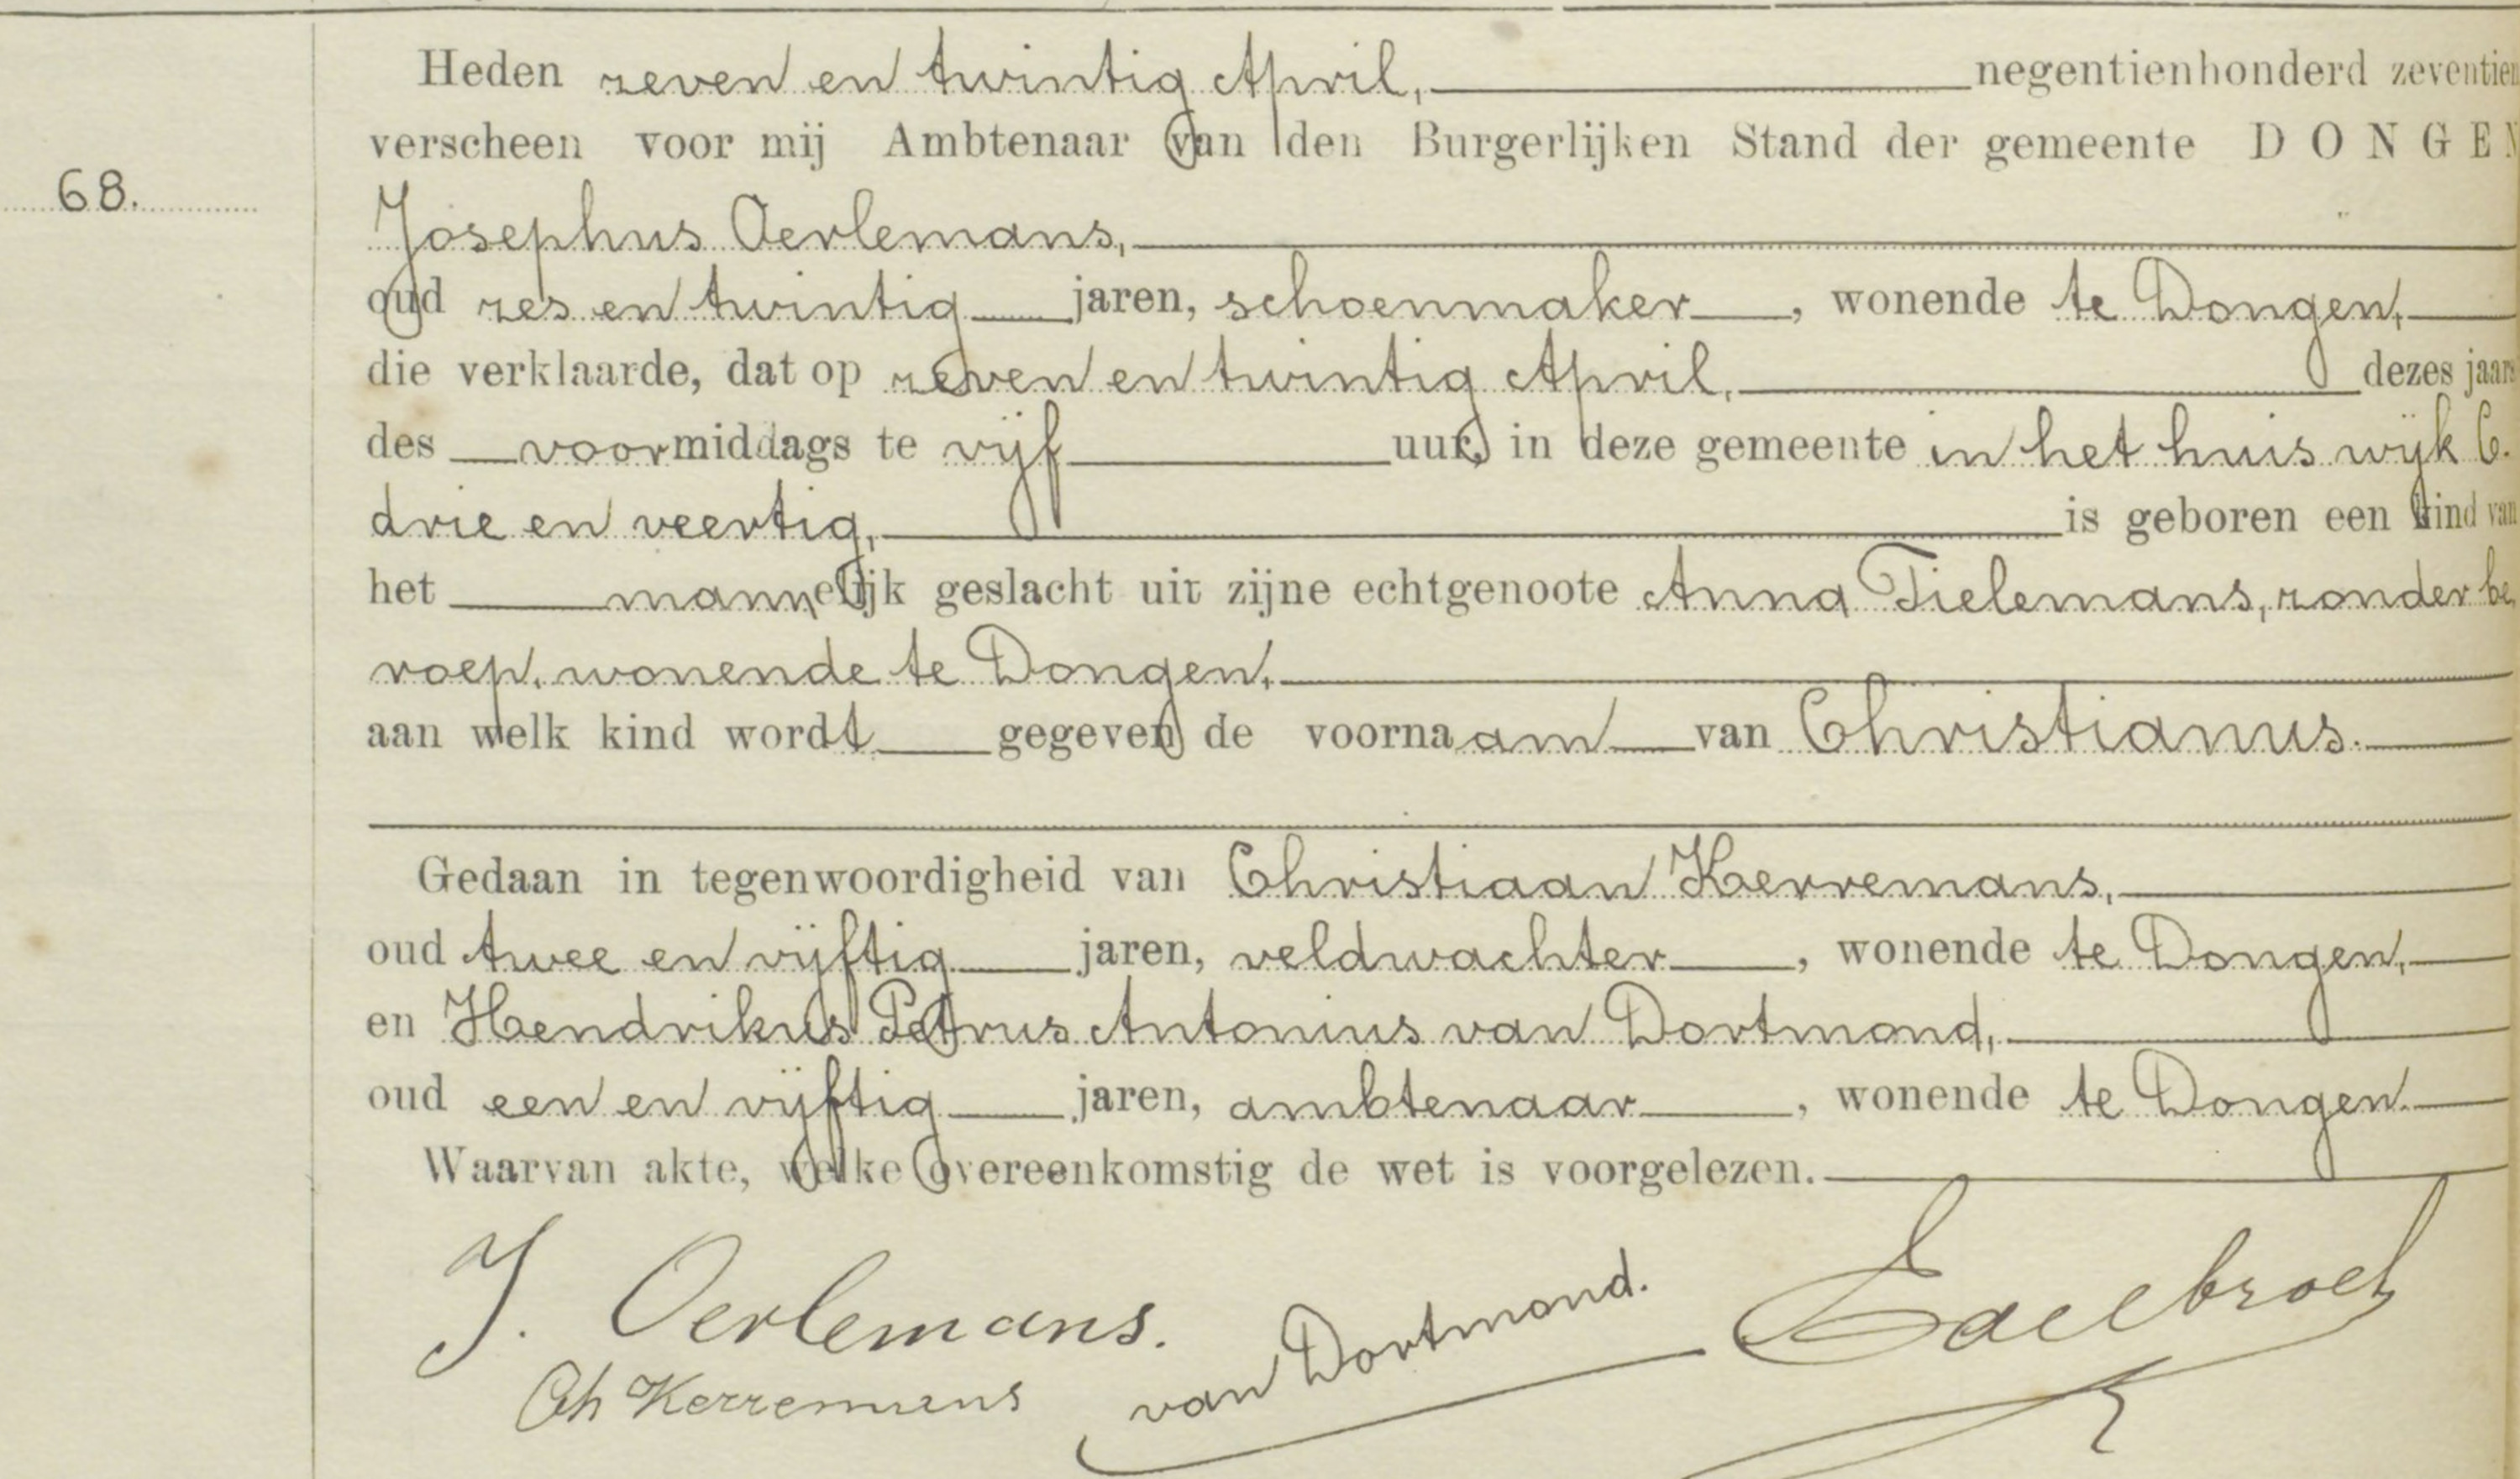 Heden zeven en twintig April, negentienhonderd zeventien
verscheen voor mij Ambtenaar van den Burgerlijken Stand der gemeente DONGEN
68.
Josephus Oerlemans,
oud zes en twintig jaren, schoenmaker, wonende te Dongen,
die verklaarde, dat op zeven en twintig April, dezes jaars
des voormiddags te vijf uur, in deze gemeente in het huis wijk C.
drie en veertig, is geboren een kind van
het mannelijk geslacht uit zijne echtgenoote Anna Tielemans, zonder be
roep, wonende te Dongen,
aan welk kind wordt gegeven de voornaam van Christianus.
Gedaan in tegenwoordigheid van Christiaan Kerremans,
oud twee en vijftig jaren, veldwachter, wonende te Dongen,
en Hendrikus Petrus Antonius van Dortmond,
oud een en vijftig jaren, ambtenaar, wonende te Dongen.
Waarvan akte, welke overeenkomstig de wet is voorgelezen.
J. Oerlemans.
van Dortmond.
Ch Kerremans